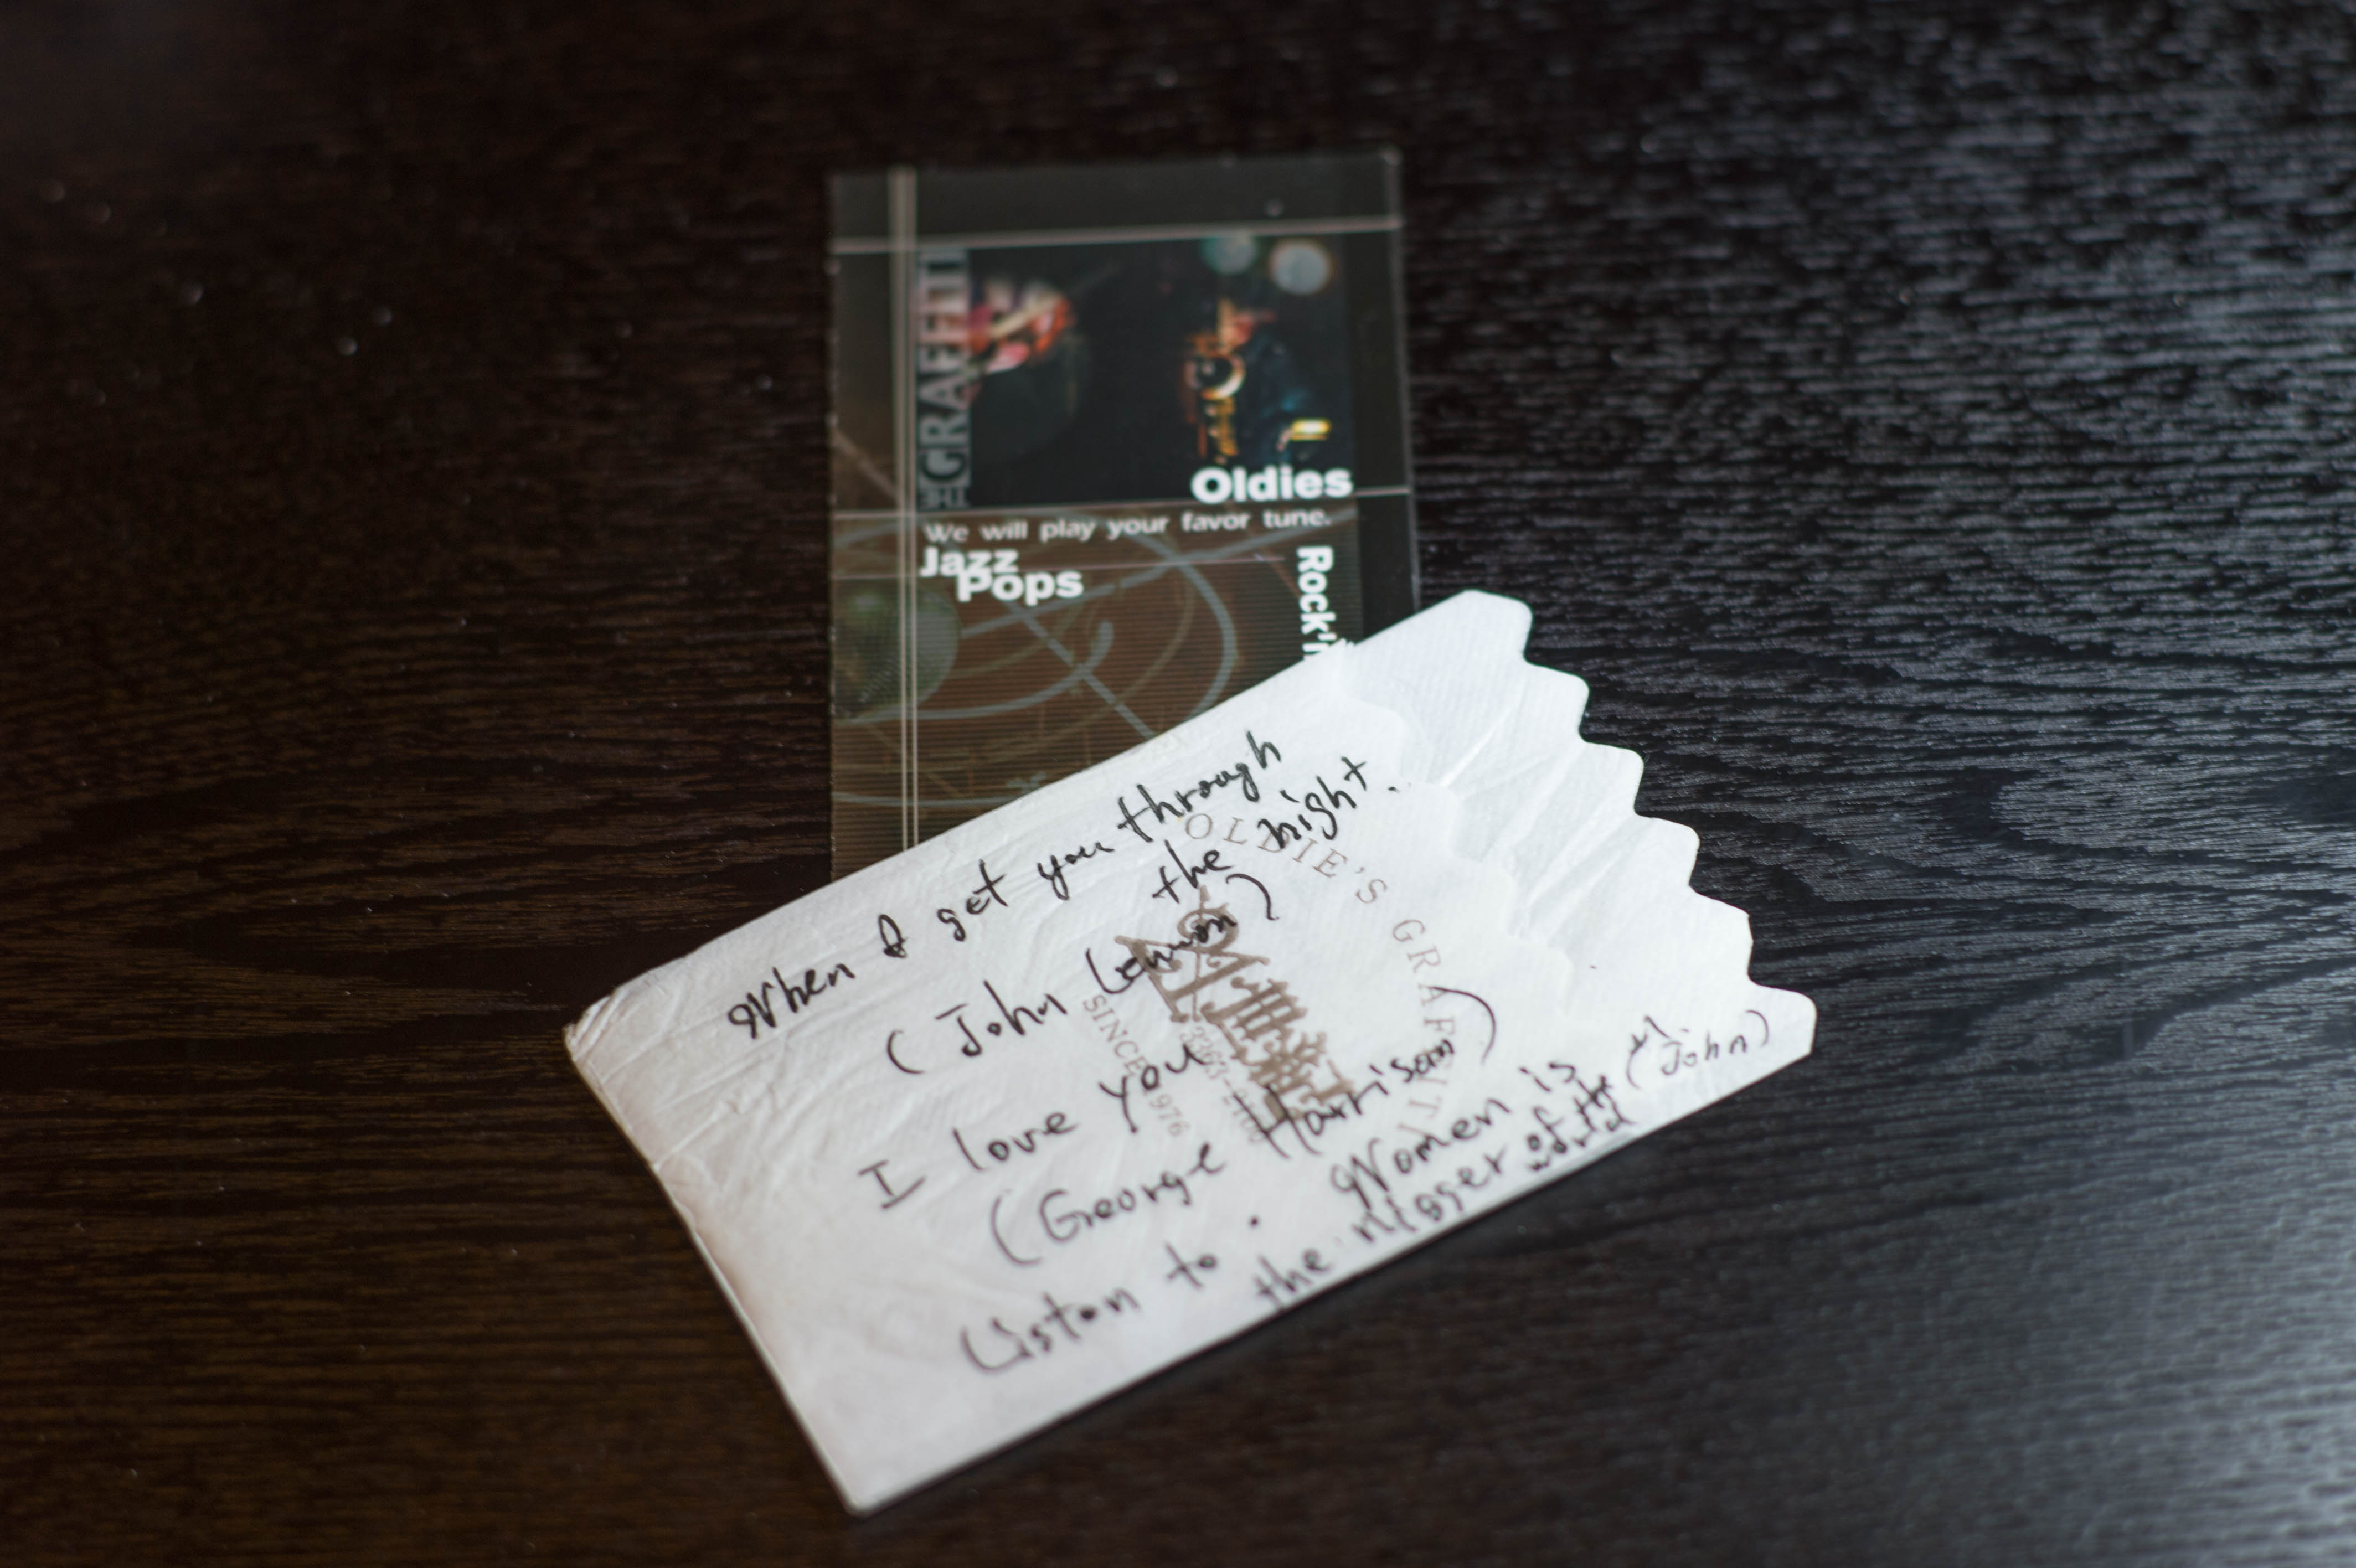 GRAFFITI
Oldies
We will play your favor tune.
Jazz
Pops
Rock'n
When I get you through
the night.
(John Lennon)
I love you
(George Harrison)
Liston to. Women is
the Nigger of the world
(John)
OLDIE'S GRAFFITI
SINCE 1976